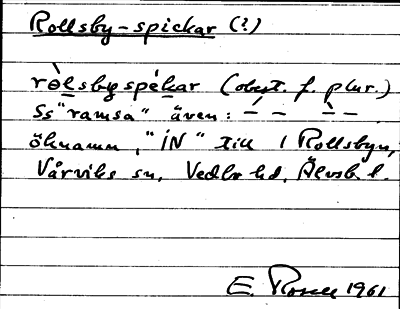 Rollsby-spickar (?)
rò̱lsbyspèkar (obest. f. plur.)
Ss "ramsa" även: –́ – –̀ –
öknamn, "IN" till 1 Rollsbyn,
Vårviks sn, Vedbo hd, Älvsb l.
E. Rosell 1961